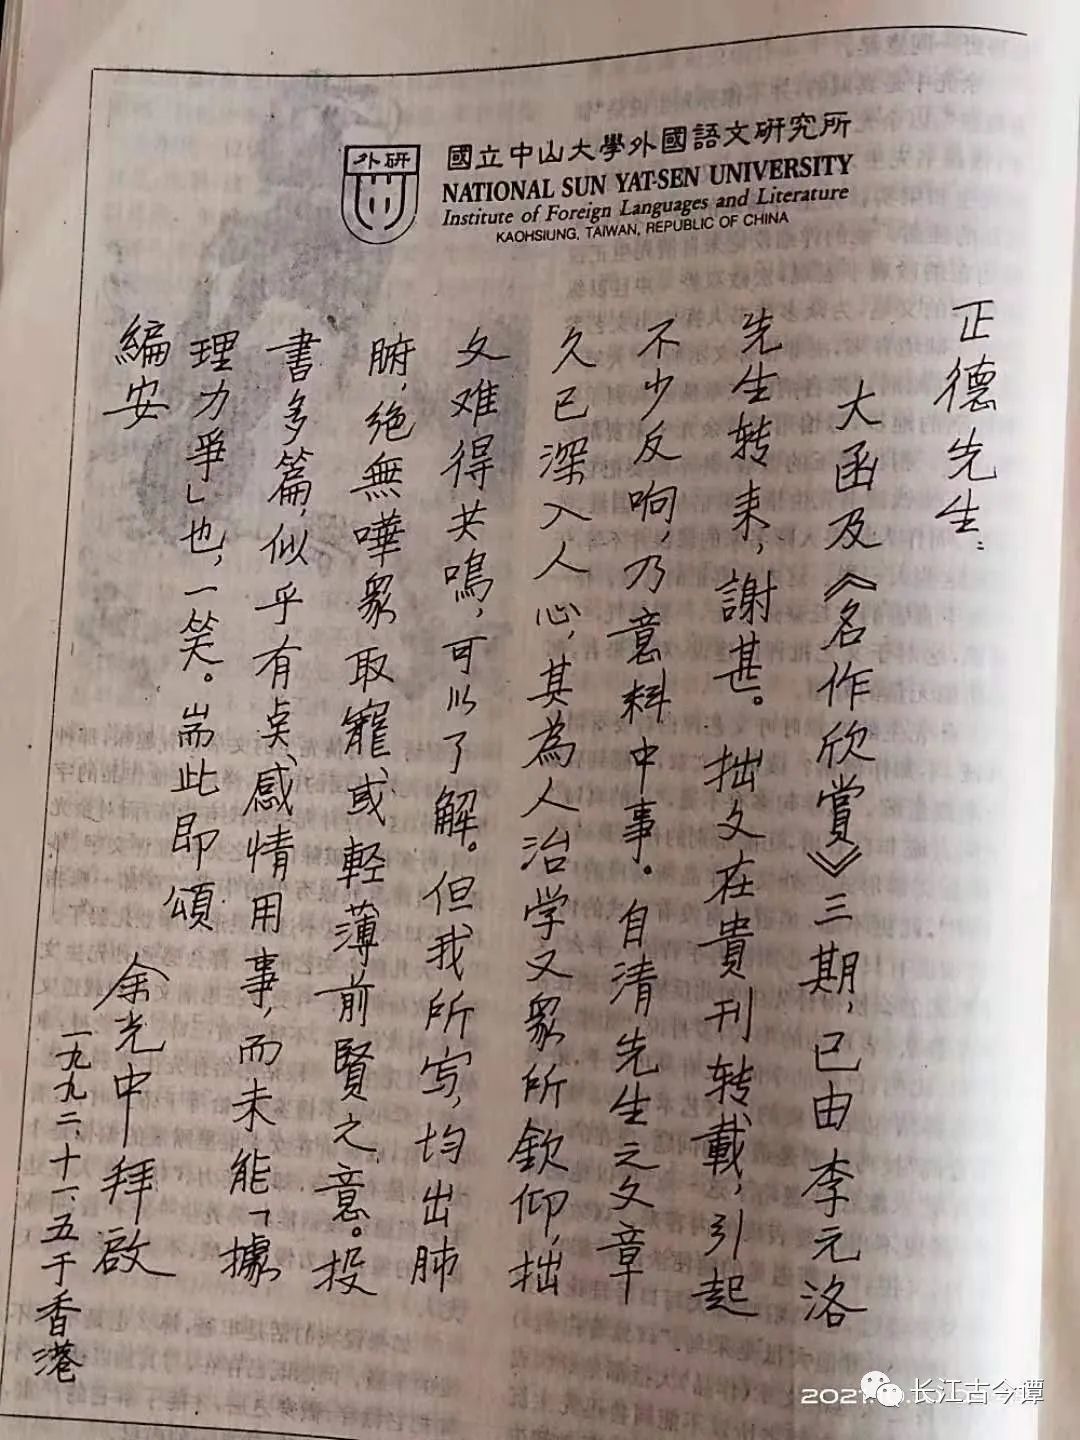 外研
國立中山大學外國語文研究所
NATIONAL SUN YAT-SEN UNIVERSITY
Institute of Foreign Languages and Literature
KAOHSIUNG, TAIWAN, REPUBLIC OF CHINA
正德先生：
大函及《名作欣賞》三期，已由李元洛
先生转来，謝甚。拙文在貴刊转載，引起
不少反响，乃意料中事。自清先生之文章
久已深入人心，其為人治学又眾所欽仰，拙
文难得共鳴，可以了解。但我所写，均出肺
腑，绝無嘩眾取寵、或輕薄前賢之意。投
書多篇，似乎有点感情用事，而未能「據
理力爭」也，一笑。耑此即頌
編安
余光中拜啟
一九九二、十一、五于香港
2021.
长江古今谭